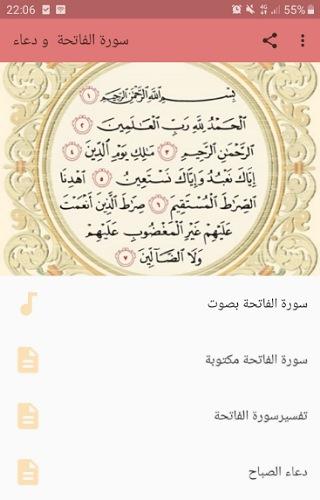 22:06 55%
سورة الفاتحة و دعاء
بِسْمِ اللَّهِ الرَّحْمَٰنِ الرَّحِيمِ ١
الْحَمْدُ لِلَّهِ رَبِّ الْعَالَمِينَ ٢
الرَّحْمَٰنِ الرَّحِيمِ ٣ مَالِكِ يَوْمِ الدِّينِ ٤
إِيَّاكَ نَعْبُدُ وَإِيَّاكَ نَسْتَعِينُ ٥ اهْدِنَا
الصِّرَاطَ الْمُسْتَقِيمَ ٦ صِرَاطَ الَّذِينَ أَنْعَمْتَ
عَلَيْهِمْ غَيْرِ الْمَغْضُوبِ عَلَيْهِمْ
وَلَا الضَّالِّينَ ٧
سورة الفاتحة بصوت
سورة الفاتحة مكتوبة
تفسيرسورة الفاتحة
دعاء الصباح